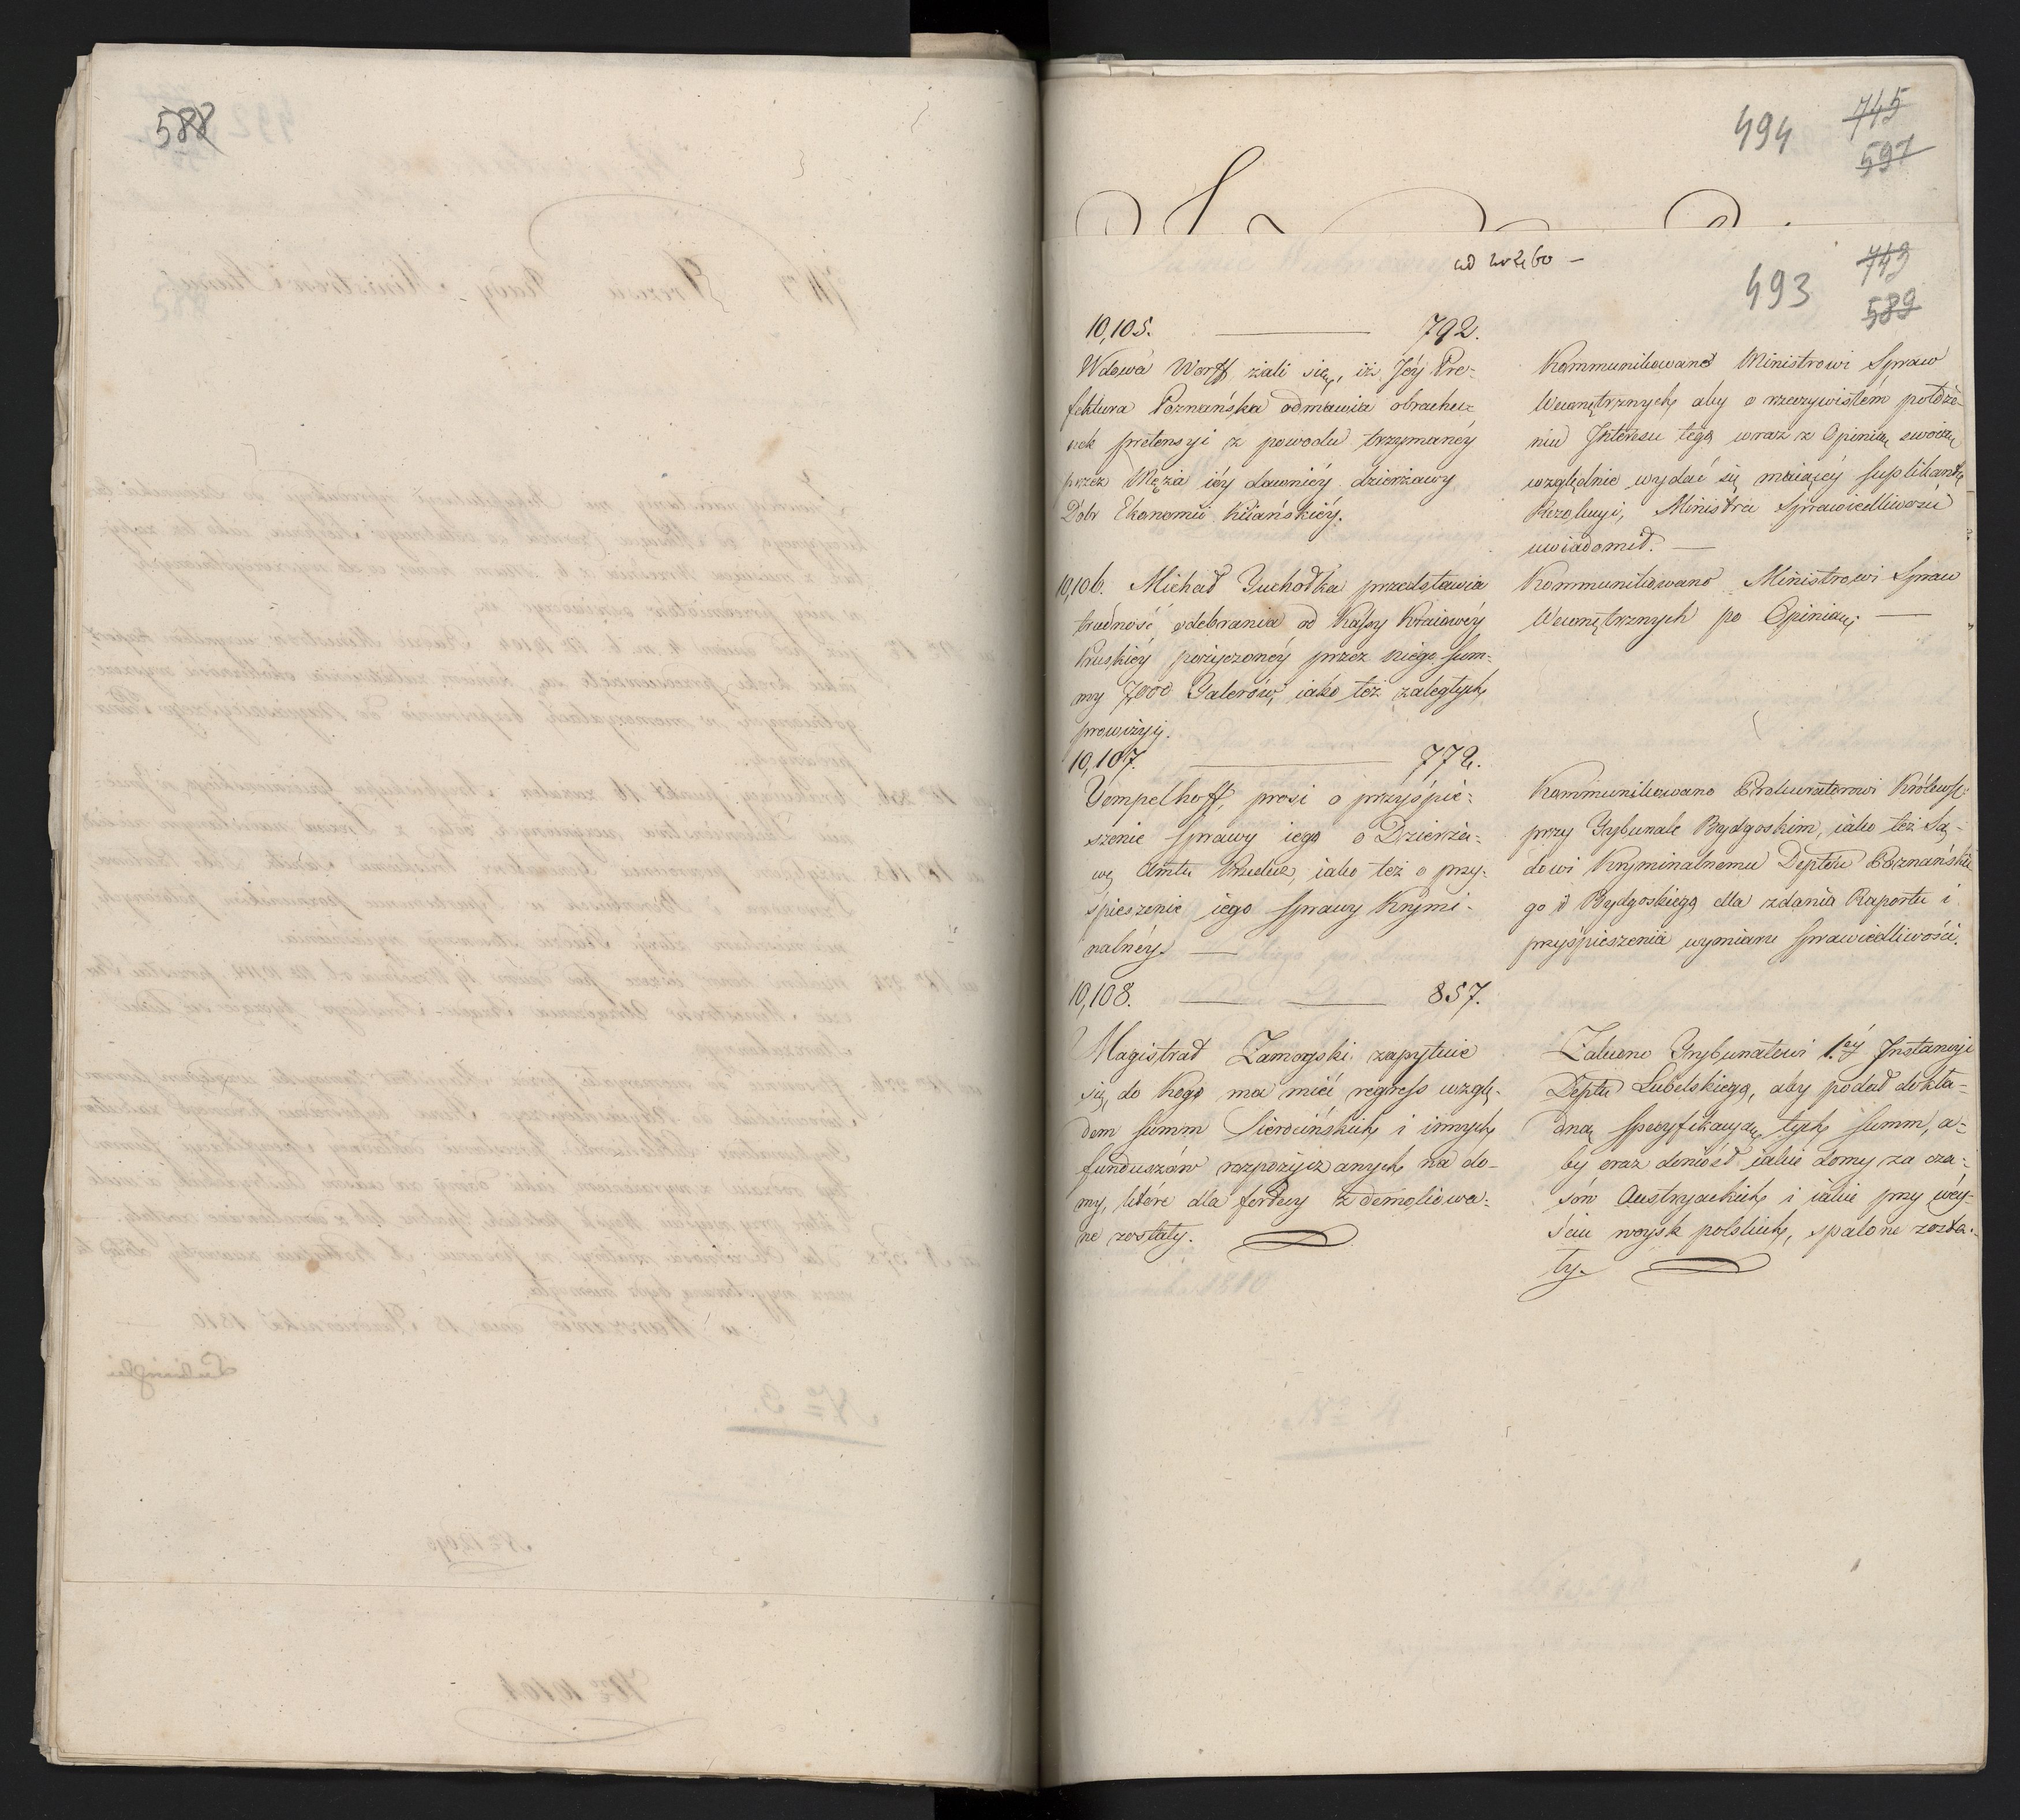 588
494
745
597
493
743
589
10,105. 792.
Wdowa Worff żali się, iż Jéy Pre-
fektura Poznańska odmawia obrachu-
nek pretensyi z powodu trzymanéy
przez Męża iéy dawniéy dzierżawy
Dóbr Ekonomii Kiiańskiéy.
Kommunikowano Ministrowi Spraw
Wewnętrznych, aby o rzeczywistém położe-
niu Interesu tego wraz z Opinią swoią
względnie wydać się maiącéy Suplikantce
Rezolucyi, Ministra Sprawiedliwości
uwiadomił.
10,106. Michał Juchodka przedstawia
trudność odebrania od Kassy Kraiowéy
Pruskiéy pożyczonéy przez niego Sum-
my 7000 Talerów, iako też zaległych
prowizyi.
Kommunikowano Ministrowi Spraw
Wewnętrznych po Opinią.
10,107. 772.
Tempelhoff, prosi o przyśpie-
szenie sprawy iego o Dzierża-
wę Amtu iako też o przy-
śpieszenie iego sprawy Krymi-
nalnéy.
Kommunikowano Prokuratorowi Królewsk:
przy Trybunale Bydgoskim, iako też Są-
dowi Kryminalnemu Deptu Poznańskie
go i Bydgoskiego dla zdania Raportu i
przyśpieszenia wymiaru sprawiedliwości.
10,108. 857.
Magistrat Zamoyski zapytuie
się, do kogo ma mieć regress wzglę-
dem summ Sierocińskich i innych
funduszów rozpożyczanych na do-
my, które dla fortecy zdemoliowa-
ne zostały.
Zalecono Trybunałowi 1éy Instancyi
Deptu Lubelskiego, aby podał dokła-
dną specyfikacyą tych summ, a-
by oraz doniósł iakie domy za cza-
sów Austryackich i iakie przy wéy-
ściu woysk polskich, spalone zosta-
ły.